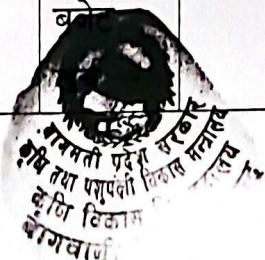 बजेट
बागमती प्रदेश सरकार
कृषि तथा पशुपंक्षी विकास मन्त्रालय
कृषि विकास